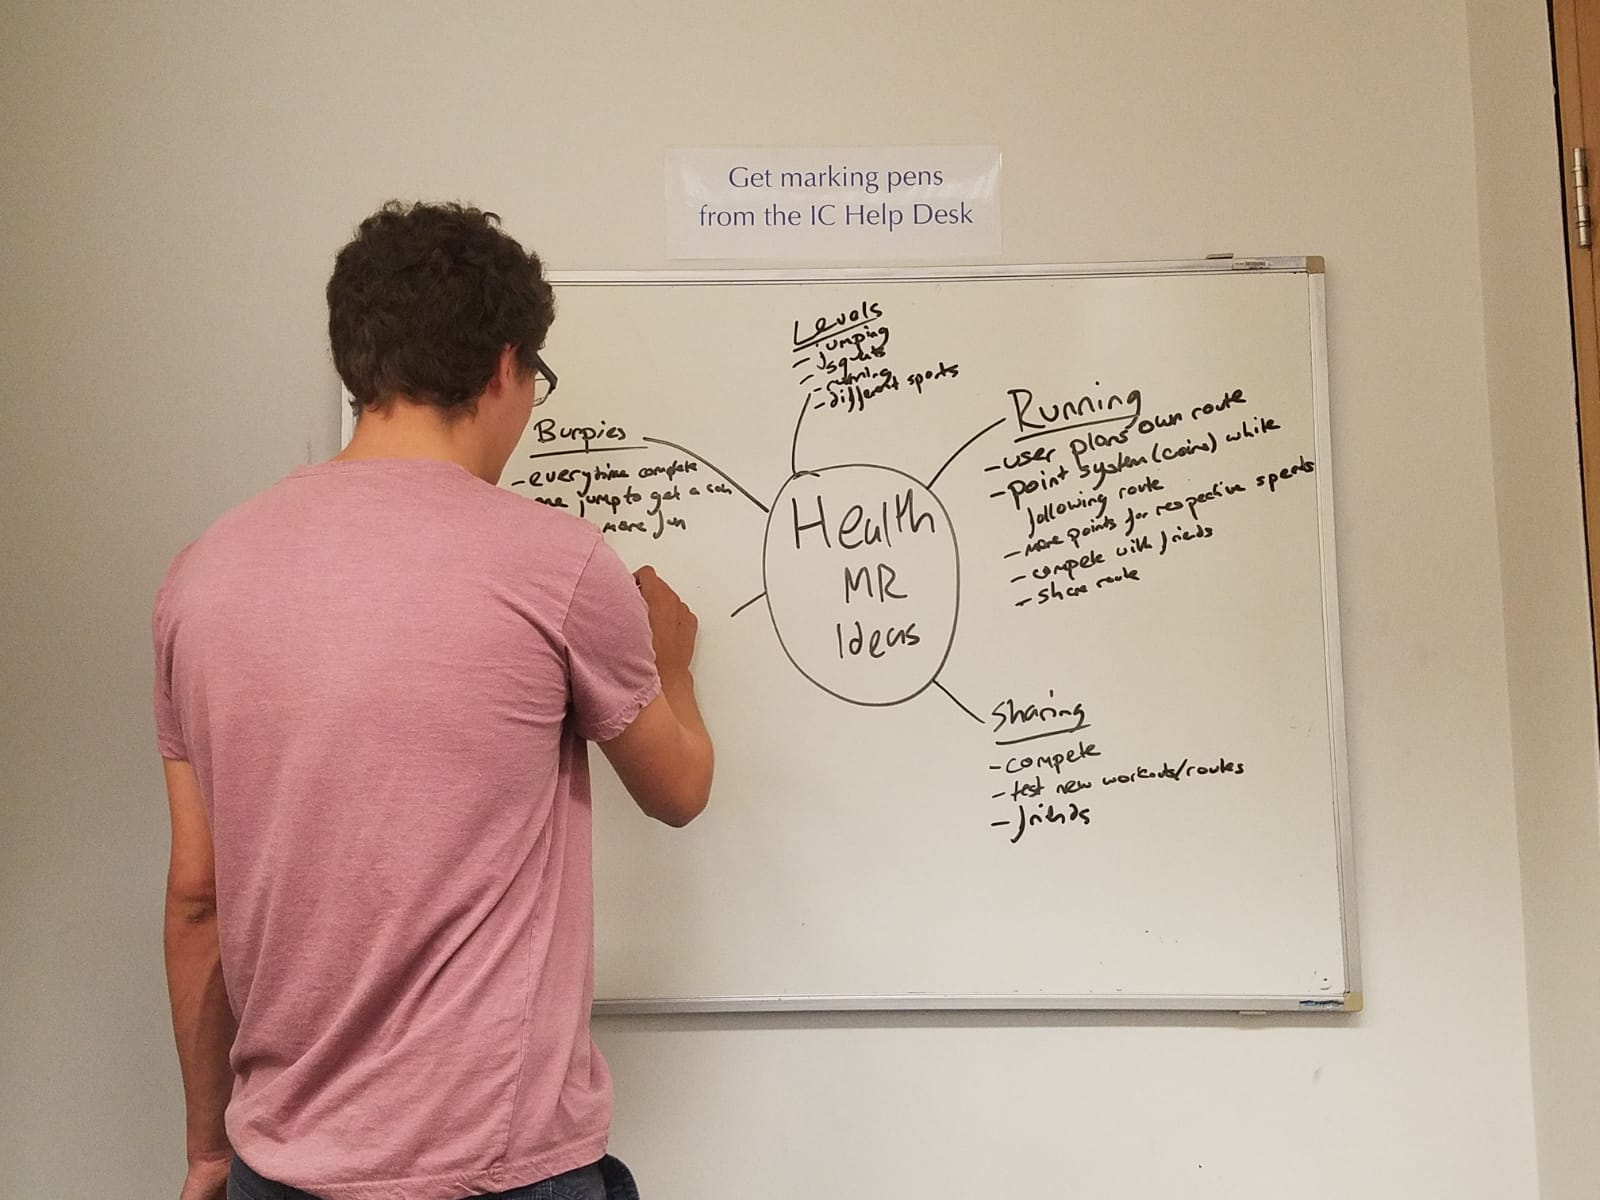 Get marking pens
from the IC Help Desk
Levels
- jumping
- squats
- running
- different sports
Burpies
- everytime complete
jump to get a coin
more fun
Health
MR
Ideas
Running
- user plans own route
- point system (coins) while
following route
- more points for respective speeds
- compete with friends
- share route
Sharing
- compete
- test new workouts/routes
- friends